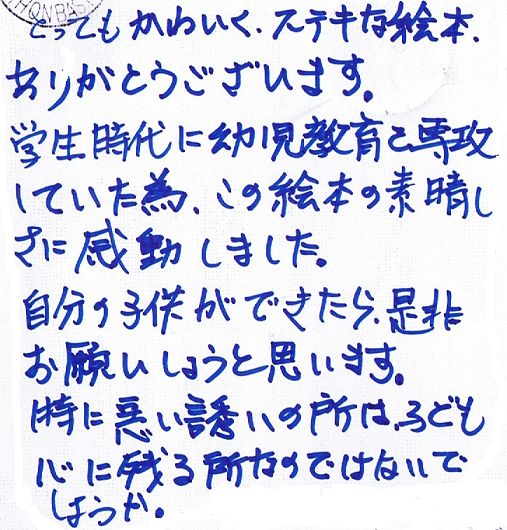 HONBAS
とってもかわいく、ステキな絵本、
ありがとうございます。
学生時代に幼児教育を専攻
していた為、この絵本の素晴し
さに感動しました。
自分の子供ができたら、是非
お願いしようと思います。
特に悪い誘いの所は、子ども
心に残る所なのではないで
しょうか。